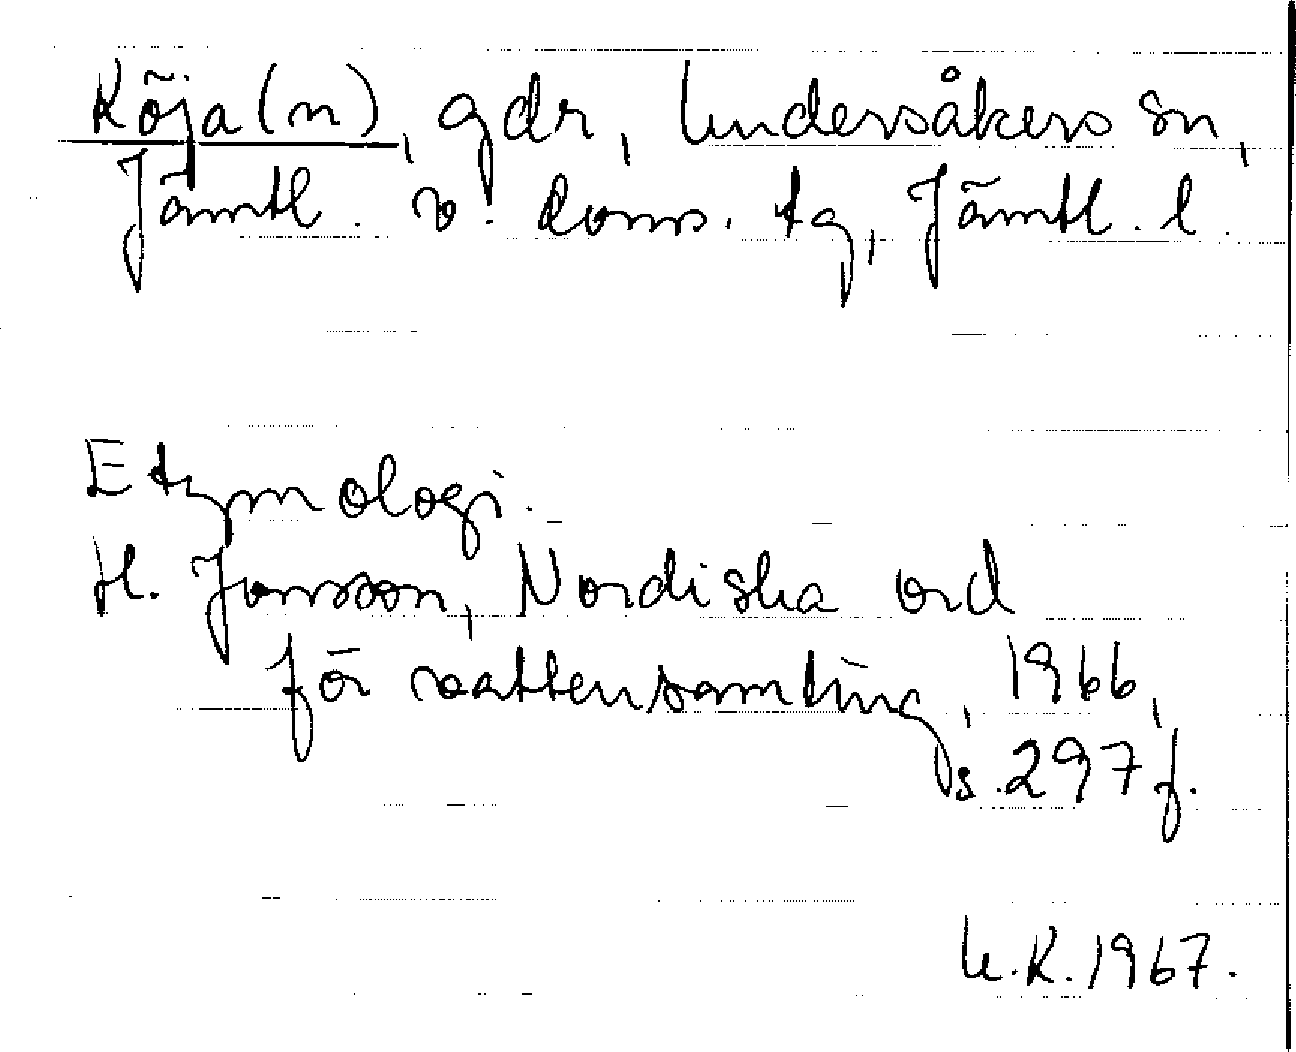 Köja(n), gdr, Undersåkers sn,
Jämtl. v. doms. tg, Jämtl. l.
Etymologi.
H. Jonsson, Nordiska ord
för vattensamling, 1966,
s. 297 f.
U.K. 1967.